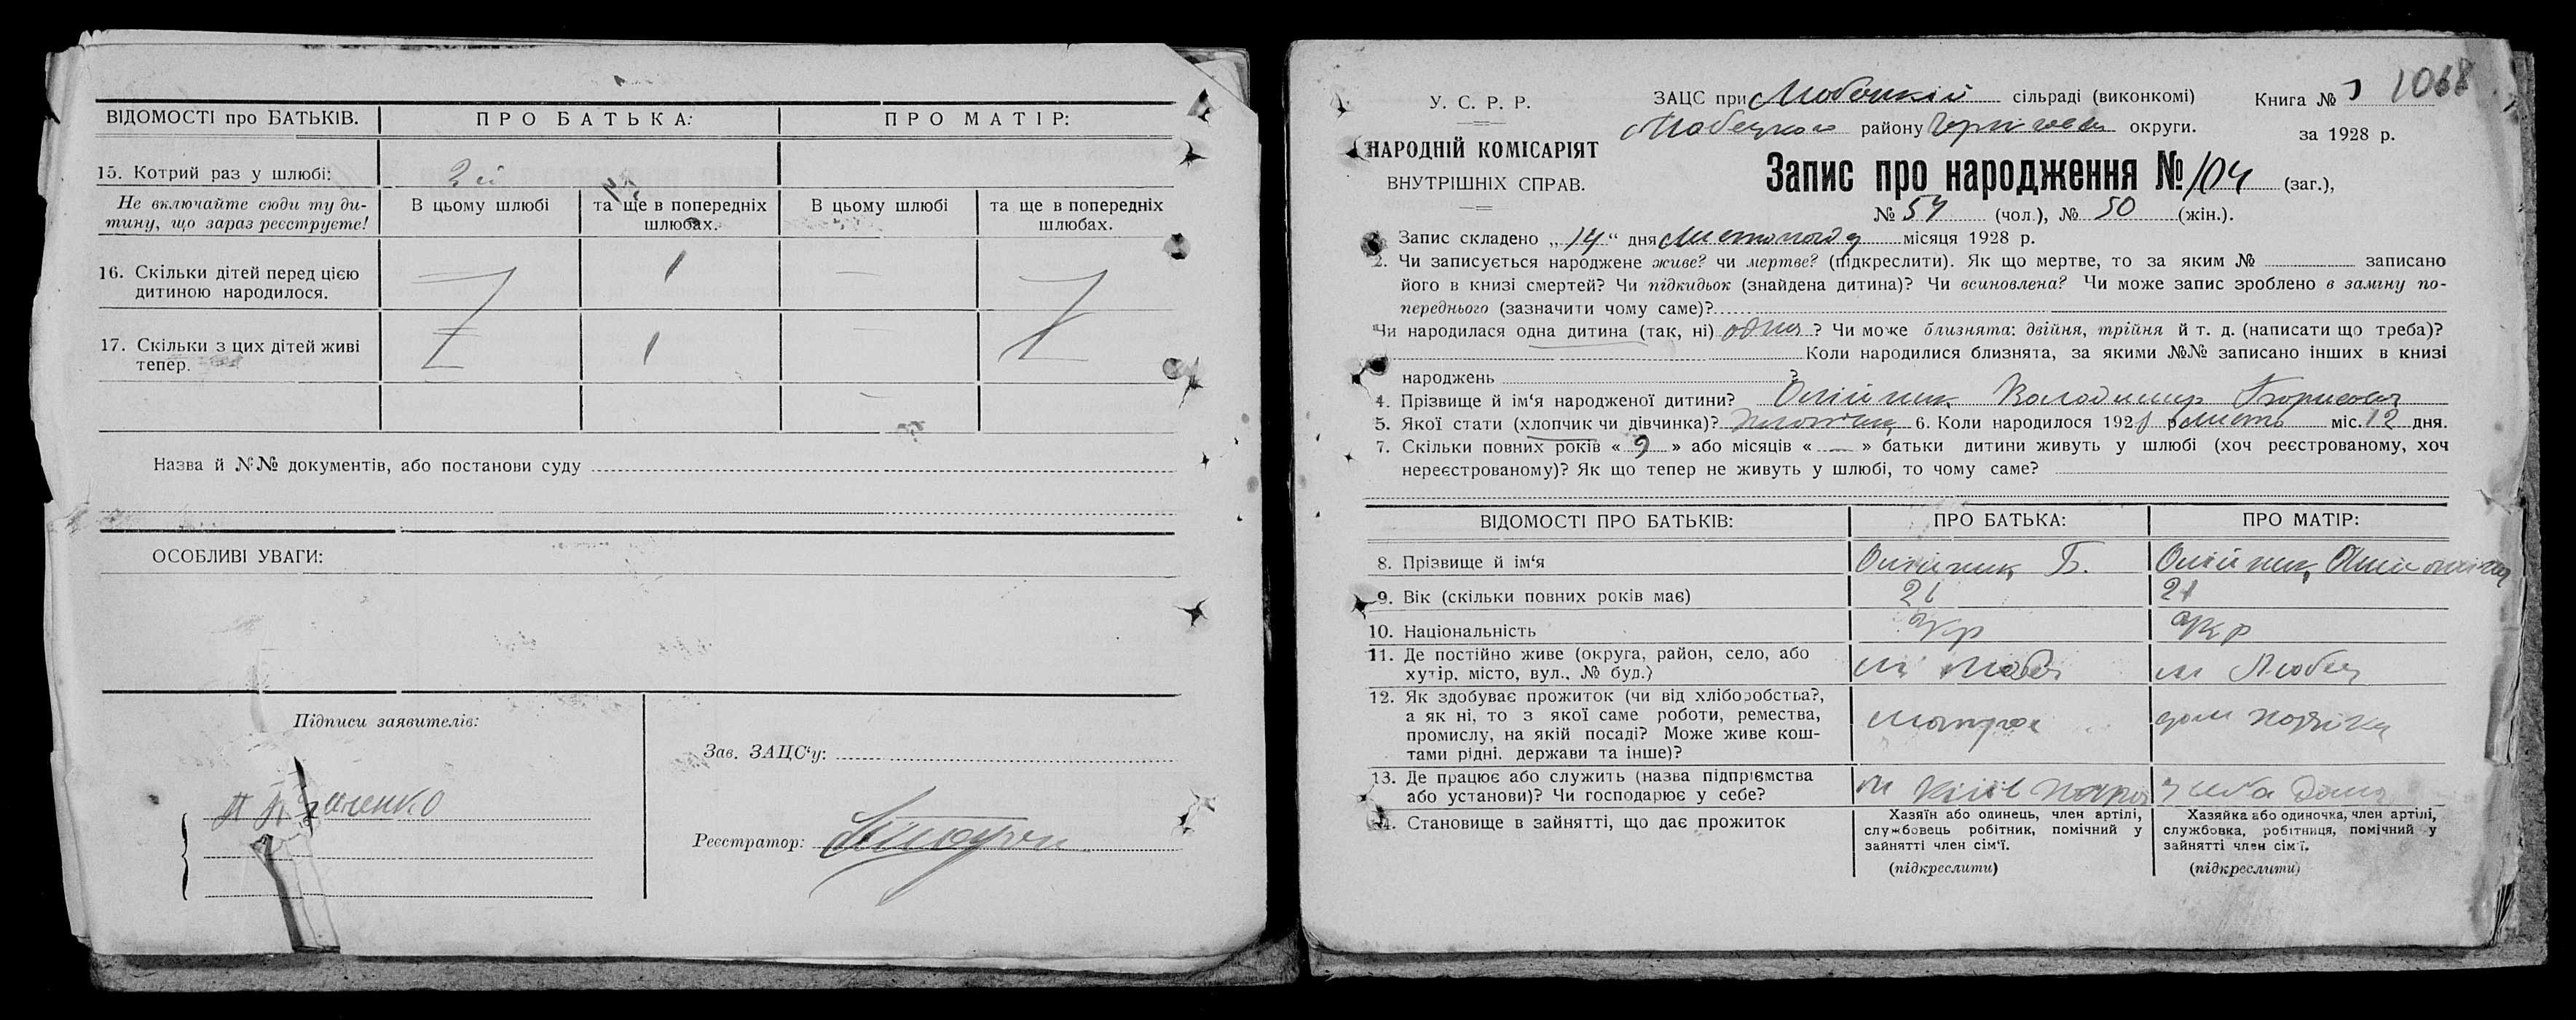 ВІДОМОСТІ про БАТЬКІВ.
ПРО БАТЬКА:
ПРО МАТІР:
15. Котрий раз у шлюбі:
2й
Не включайте сюди ту ди-
тину, що зараз реєструєте!
В цьому шлюбі
та ще в попередніх
шлюбах.
В цьому шлюбі
та ще в попередніх
шлюбах.
16. Скільки дітей перед цією
дитиною народилося.
1
17. Скільки з цих дітей живі
тепер.
1
Назва й №№ документів, або постанови суду
ОСОБЛИВІ УВАГИ:
Підписи заявителів:
Зав. ЗАЦС'у:
Реєстратор:
1068
У. С. Р. Р.
НАРОДНІЙ КОМІСАРІЯТ
ВНУТРІШНІХ СПРАВ.
ЗАЦС при Любецкій сільраді (виконкомі)
Любецкого району Чернігов округи.
Книга №
за 1928 р.
Запис про народження № 104 (заг.),
№ 54 (чол.), № 50 (жін.).
Запис складено „14“ дня Листопада місяця 1928 р.
2. Чи записується народжене живе? чи мертве? (підкреслити). Як що мертве, то за яким № записано
його в книзі смертей? Чи підкидьок (знайдена дитина)? Чи всиновлена? Чи може запис зроблено в заміну по-
переднього (зазначити чому саме)?
Чи народилася одна дитина (так, ні) одна? Чи може близнята: двійня, трійня й т. д. (написати що треба)?
Коли народилися близнята, за якими №№ записано інших в книзі
народжень ?
4. Прізвище й ім'я народженої дитини? Олійник Володимир Борисович
5. Якої стати (хлопчик чи дівчинка)? хлопчик 6. Коли народилося 1928 р. лист міс. 12 дня.
7. Скільки повних років « 2 » або місяців « — » батьки дитини живуть у шлюбі (хоч реєстрованому, хоч
нереєстрованому)? Як що тепер не живуть у шлюбі, то чому саме?
ВІДОМОСТІ ПРО БАТЬКІВ:
ПРО БАТЬКА:
ПРО МАТІР:
8. Прізвище й ім'я
Олійник Б.
Олійник
9. Вік (скільки повних років має)
21
21
10. Національність
Укр
Укр
11. Де постійно живе (округа, район, село, або
хутір, місто, вул., № буд.)
м Любеч
м Любеч
12. Як здобуває прожиток (чи від хліборобства?,
а як ні, то з якої саме роботи, ремества,
промислу, на якій посаді? Може живе кош-
тами рідні, держави та інше)?
матрос
дом хозяйка
13. Де працює або служить (назва підприємства
або установи)? Чи господарює у себе?
м Київ
у себа дома
14. Становище в зайнятті, що дає прожиток
Хазяїн або одинець, член артілі,
службовець робітник, помічний у
зайнятті член сім'ї.
(підкреслити)
Хазяйка або одиночка, член артілі,
службовка, робітниця, помічний у
зайнятті член сім'ї.
(підкреслити)